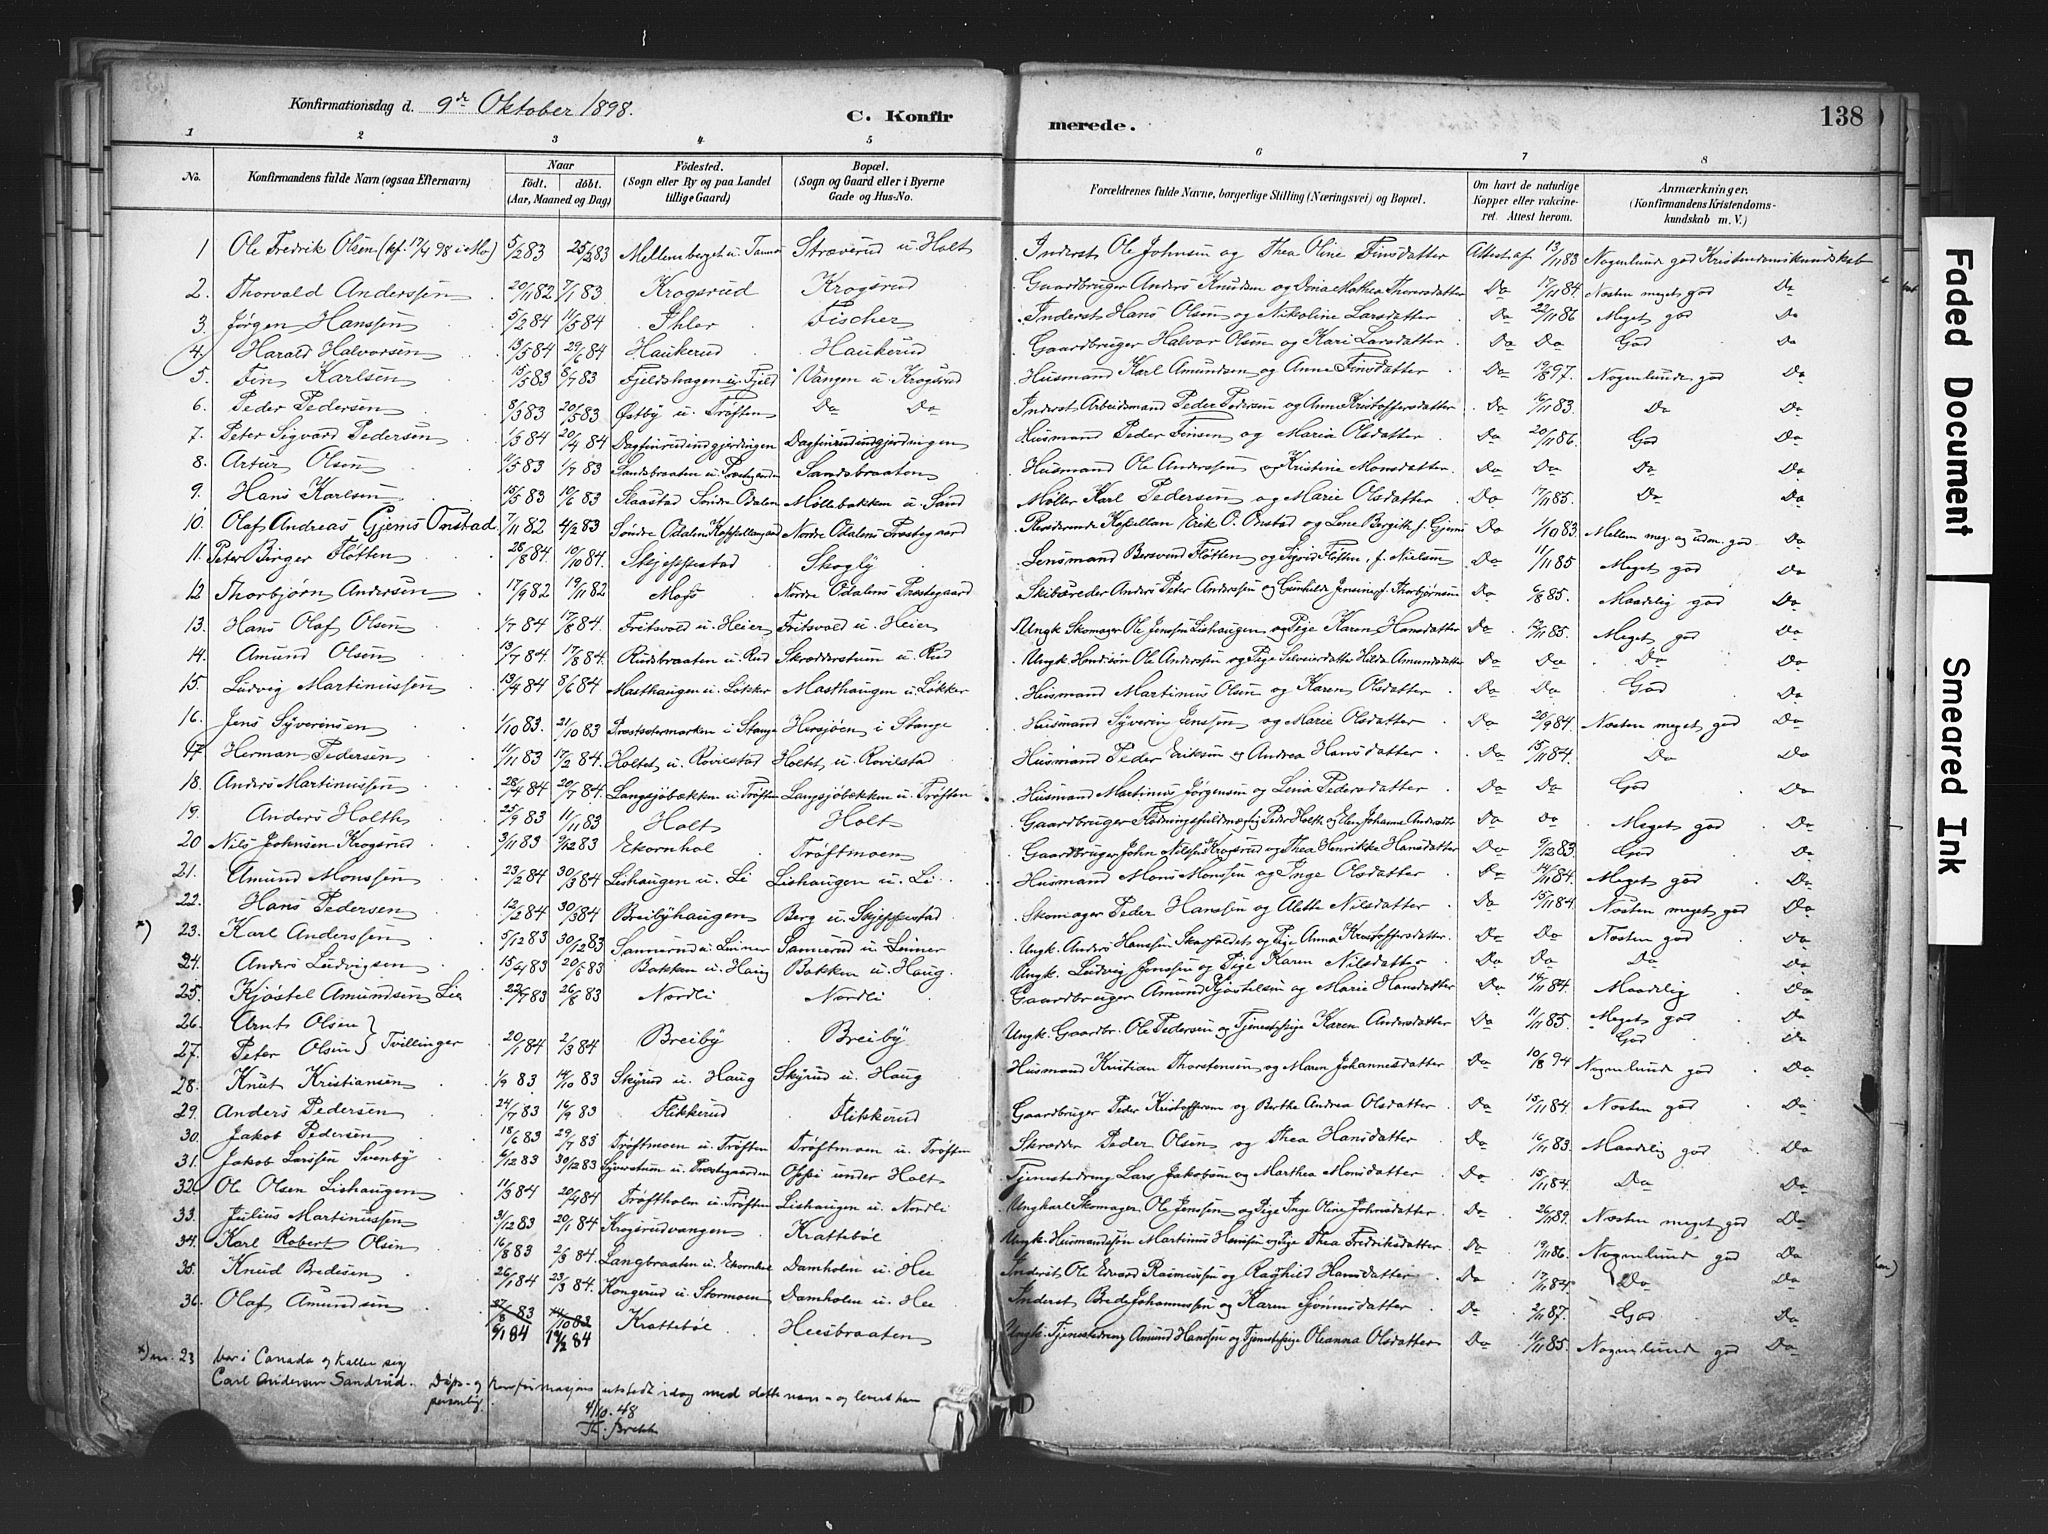 Konfirmationsdag d. 9de Oktober 1898.
C. Konfirmerede.
138
1 2 3 4 5 6 7 8
No. Konfirmandens fulde Navn (ogsaa Efternavn) Naar födt. döbt. (Aar, Maaned og Dag) Födested. (Sogn eller By og paa Landet tillige Gaard) Bopæl. (Sogn og Gaard eller i Byerne Gade og Hus-No. Forældrenes fulde Navne, borgerlige Stilling (Næringsvei) og Bopæl. Om havt de naturlige Kopper eller vakcineret. Attest herom. Anmærkninger. (Konfirmandens Kristendomskundskab m. V.)
1 Ole Fredrik Olsen (kf. 17/4 98 i Mo) 5/2 83 25/3 83 Mellemberget u. Strøverud u. Holt Inderst Ole Johnsen og Thea Oline Finsdatter Attest af 13/11 83 Nogenlunde god Kristendomskundskab
2. Thorvald Anderssen 20/11 82 7/1 83 Krogsrud Krogsrud Gaardbruger Anders Knudsen og Dina Mathea Thoresdatter Do 17/11 84. Næsten meget god Do
3. Jørgen Hanssen 5/2 84 11/5 84 Ihler Fischer Inderst Hans Olsen og Nikoline Larsdatter Do 22/11 86 Meget god Do
4. Harald Halvorsen 13/5 84 29/6 84 Haukerud Haukerud Gaardbruger Halvor Olsen og Kari Larsdatter Do Do God Do
5. Fin Karlsen 15/5 83 8/7 83 Fjeldshagen u. Fjeld Vangen u. Krogsrud Husmand Karl Amundsen og Anne Finsdatter Do 97. Nogenlunde god Do
6. Peder Pedersen 8/3 83 20/5 83 Østby u. Trøften Do Do Inderst Arbeidsmand Peder Pedersen og Anne Kristoffersdatter Do 83. Do Do
7. Peter Sigvard Pedersen 1/3 84 20/4 84 Dagfinrudindgjerdingen Dagfinrudindgjerdingen Husmand Peder Finsen og Maria Olsdatter Do 20/11 86. God Do
8. Artur Olsen 11/5 83 1/7 83 Sandsbraaten u. Præstegaarden Sandsbraaten Husmand Ole Anderssen og Kristine Monsdatter Do Do Do Do
9. Hans Karlsen 15/5 83 10/6 83 Slaastad Søndre Odalen Møllebakken u. Sand Møller Karl Pedersen og Marie Olsdatter Do 17/11 85. Do Do
10. Olaf Andreas Gjems Onstad 7/11 82 4/2 83 Søndre Odalen Kappellangaard Nordre Odalens Præstegaard Residerende Kapellan Erik O. Onstad og Lene Bergith f. Gjems Do 1/10 83 Mellem meg og udm. god Do
11. Peter Birger Fløtten 26/8 84 10/10 84. Skjeppestad Skogly Lensmand Bersvend Fløtten og Sigrid Fløtten, f. Nielsen Do 11/11 85 Meget god Do
12 Thorbjørn Andersen 17/9 82 19/11 82 Moss Nordre Odalens Præstegaard Skibsreder Anders Peter Anderssen og Gunhilde Jensine, f. Thorbjørnsen Do 6/8 85. Maadelig god Do
13. Hans Olaf Olsen 1/7 84 17/8 84. Fritsvold u. Heier Fritsvold u. Heier Ungk Skomager Ole Jenssen Lishaugen og Pige Karen Hansdatter Do 12/11 85. Meget god Do
14. Amund Olsen 13/7 84. 17/8 84. Rudsbraaten u. Rud Skrædderstuen u. Rud Ungk. Ole Anderssen og Pige Hilda Amundsdatter Do Do Do Do
15. Ludvig Martinussen 13/4 84 8/6 84 Masthaugen u. Løkker Masthaugen u. Løkker Husmand Martinus Olsen og Karen Olsdatter Do Do God Do
16. Jens Syverinsen 1/10 83. 21/10 83 Præstsetermarken i Stange Hersjøen i Stange Husmand Syverin Jenssen og Marie Olsdatter Do 20/9 84 Næsten meget god Do
17. Herman Pedersen 11/11 83 17/2 84. Holtet u. Rovilstad Holtet u. Rovilstad Husmand Peder Eriksen og Andrea Hansdatter Do 15/11 84. Do Do
18. Anders Martinussen 28/4 84 20/7 84. Langsjøbækken u. Trøften Langsjøbækken u. Trøften Husmand Martinus Jørgensen og Lina Pedersdatter Do Do God Do
19. Anders Holth 25/9 83 11/11 83 Holt Holt Gaardbruger Flødningsfuldmægtig Peder Holth og Elen Johanne Andersdtr Do do Meget god Do
20 Nils Johnsen Krogsrud 3/11 83 9/12 83 Ekornhol Trøftmoen Gaardbruger John Nilsen Krogsrud og Thea Henrikke Hansdatter Do 9/12 83. God Do
21. Amund Monssen 23/2 84 30/3 84 Lishaugen u. Li Lishaugen u. Li Husmand Mons Monssen og Inge Olsdatter Do 14/11 84. Meget god Do
22. Hans Pedersen 12/2 84 30/3 84 Breibyhaugen Berg u. Skjeppestad Skomager Peder Hanssen og Alette Nilsdatter Do 15/11 84 Næsten meget god Do
*) 23. Karl Anderssen 5/12 83 30/12 83 Sannerud u. Leiner Sannerud u. Leiner Ungk. Anders Hanssen og Pige Anna Kristoffersdatter Do Do Næsten god Do
24. Anders Ludvigsen 15/4 83 20/5 83 Bakken u. Haug Bakken u. Haug. Ungk. Ludvig Jenssen og Pige Karen Nilsdatter Do Do Do Do
25. Kjøstel Amundsen Lie 22/7 83 26/8 83 Nordli Nordli Gaardbruger Amund Kjøstelsen og Marie Hansdatter Do 84. Maadelig Do
26. Arnt Olsen } Meget god Do
27. Peter Olsen } Tvillinger 20/1 84 2/3 84 Breiby Breiby Ungk. Gaardbr. Ole Pedersen og Tjenestepige Karen Andersdatter Do 11/11 85. God do
28. Knut Kristiansen 1/9 83 14/10 83 Skyrud u. Haug Skyrud u. Haug Husmand Kristian Thorstensen og Maren Johannesdatter Do 10/8 94 Nogenlunde god Do
29. Anders Pedersen 24/7 83 16/9 83 Flikkerud Flikkerud Gaardbruger Peder Kristoffersen og Berthe Andrea Olsdatter Do 15/11 84. Næsten god Do
30. Jakob Pedersen 18/6 83 29/7 83 Trøftmoen u. Trøften Trøftmoen u. Trøften Skrædder Peder Olsen og Thea Hansdatter Do 16/11 83. Maadelig god Do
31. Jakob Larssen Svenby 6/12 83 30/12 83 Syverstun u. Præstegaarden under Holt Tjenestedreng Lars Jakobsen og Marthea Monsdatter Do 15/11 84. Do Do
32. Ole Olsen Lishaugen 11/3 84 20/4 84 Trøftholm u. Trøften Lishaugen u. Nordli Ungkarl Skomager Ole Jenssen og Pige Inge Oline Johnsdatter Do 26/11 89. Næsten meget god Do
33. Julius Martinussen 31/12 83 20/1 84 Krogsrudvangen Krattebøl Ungk. Husmandssøn Martinus Hanssen og Pige Thea Fredriksdatter Do 19/11 86. Nogenlunde god Do
34. Karl Robert Olsen 16/8 83 2/3 84. Langbraaten u. Ekornhol Damholen u. Hee Inderst Ole Edvard Rasmussen og Raghild Hansdatter Do 17/11 84 Do Do
35. Knud Bredesen 26/1 84 23/3 84. Kongerud u. Stormoen Damholen u. Hee Inderst Brede Johannessen og Karen Simensdatter Do 2/11 87. God Do
36. Olaf Amundsen 27/8 83 14/10 83 6/1 84 14/2 84 Krattebøl Heesbraaten Ungk. Tjenestedreng Amund Hanssen og Tjenestepige Oleanna Olsdatter Do 11/11 85. Nogenlunde god Do
*) nr. 23 bor i Canada og kaller sig
Carl Andersen Sandrud. Dåps- og konfirmasjons utstedt idag med dette navn - og levert ham
personlig.
4/10. 48
Th.
Faded Document
Smeared Ink